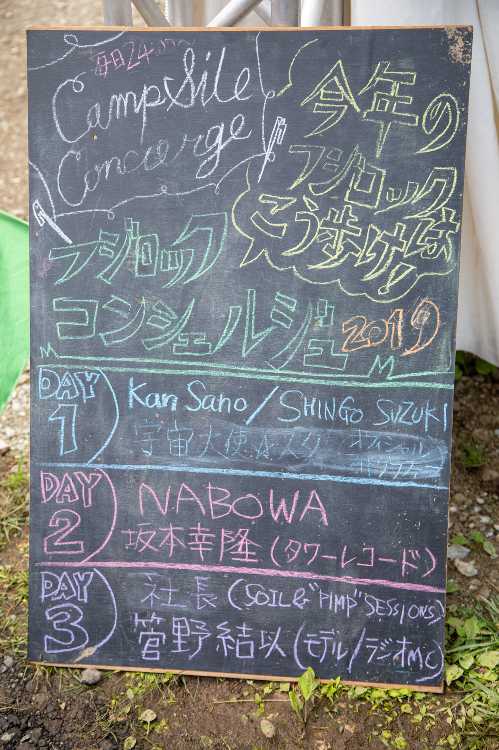 毎日24
CampSite
Concierge
今年の
フジロック
こう歩け!は
フジロック
コンシェルジュ 2019
DAY 1
Kan Sano / SHINGO SUZUKI
宇宙大使☆スター
DAY 2
NABOWA
坂本幸隆(タワーレコード)
DAY 3
社長(SOIL&"PIMP"SESSIONS)
菅野結以(モデル/ラジオMC)